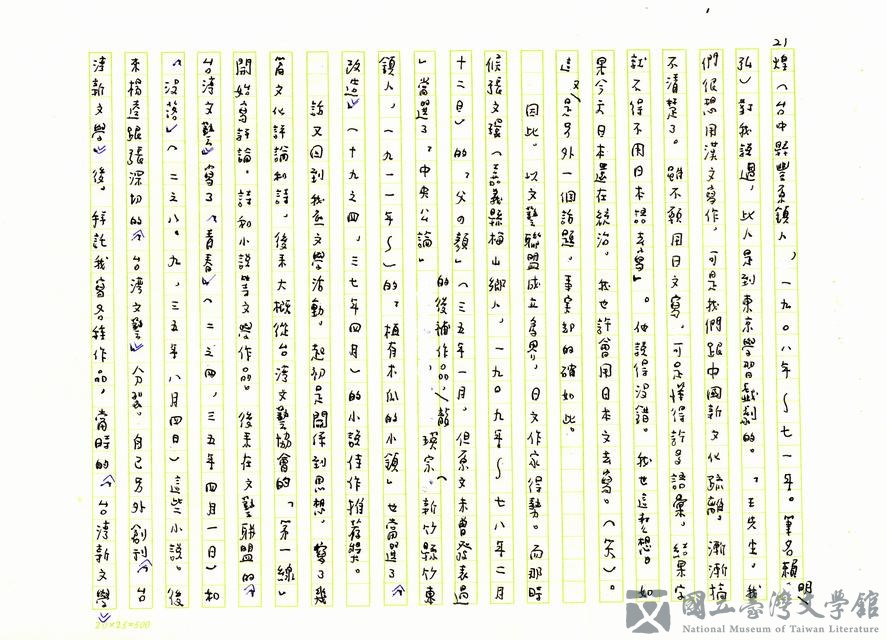 21
煌（台中縣豐原鎮人，一九〇八年～七一年。筆名賴明
弘）對我說過，此人是到東京學習戲劇的。「王先生。我
們很想用漢文寫作，可是我們跟中國新文化疏離，漸漸搞
不清楚了。雖不願用日文寫，可是懂得許多語彙，結果字
就不得不用日本語去寫」。他說得沒錯。我也這麼想。如
果今天日本還在統治，我也許會用日本文去寫。（笑）。
這又是另外一個話題。事実却的確如此。
因此，以文藝聯盟成立為界，日文作家得勢。而那時
候張文環（嘉義縣梅山鄉人，一九〇九年～七八年二月
十二日）的「父の顏」（三五年一月，但原文未曾發表過
」當選了「中央公論」的後補作品，龍瑛宗（新竹縣竹東
鎮人，一九一一年～）的「植有木瓜的小鎮」也當選了《
改造》（十九之四，三七年四月）的小說佳作推荐獎。
話又回到我底文學活動。起初是關係到思想，寫了幾
篇文化評論和詩，後來大概從台湾文藝協會的「第一線」
開始寫評論。詩和小說等文學作品。後來在文藝聯盟的《
台湾文藝》寫了〈青春〉（二之四，三五年四月一日）和
〈没落〉（二之八。九，三五年八月四日）這些小說。後
來楊逵跟張深切的《台湾文藝》分裂。自己另外創刊《台
湾新文學》後，拜託我寫各種作品，當時的《台湾新文學》
20×25=500
國立臺灣文學館
National Museum of Taiwan Literature